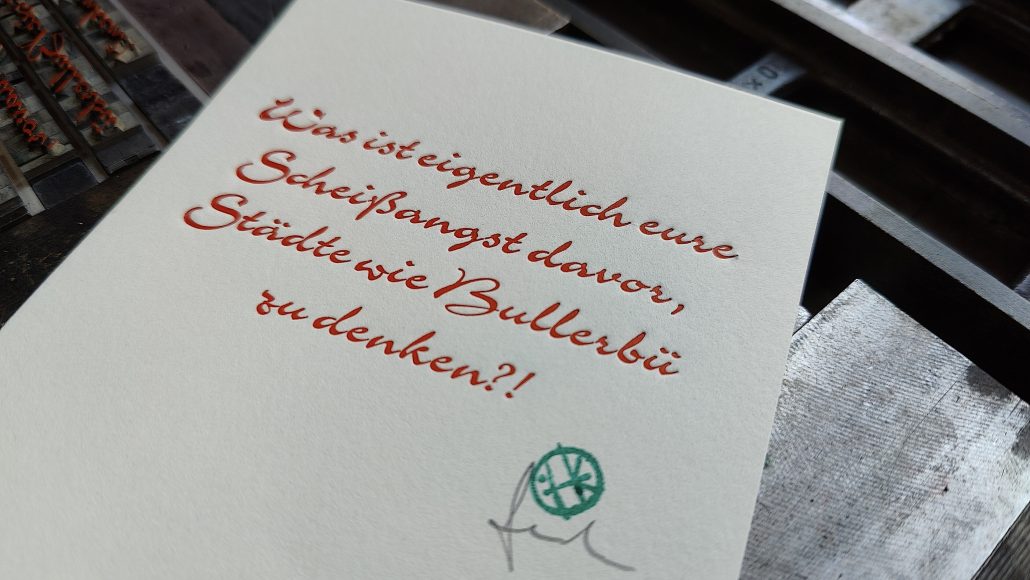 Was ist eigentlich eure
Scheißangst davor,
Städte wie Bullerbü
zu denken?!